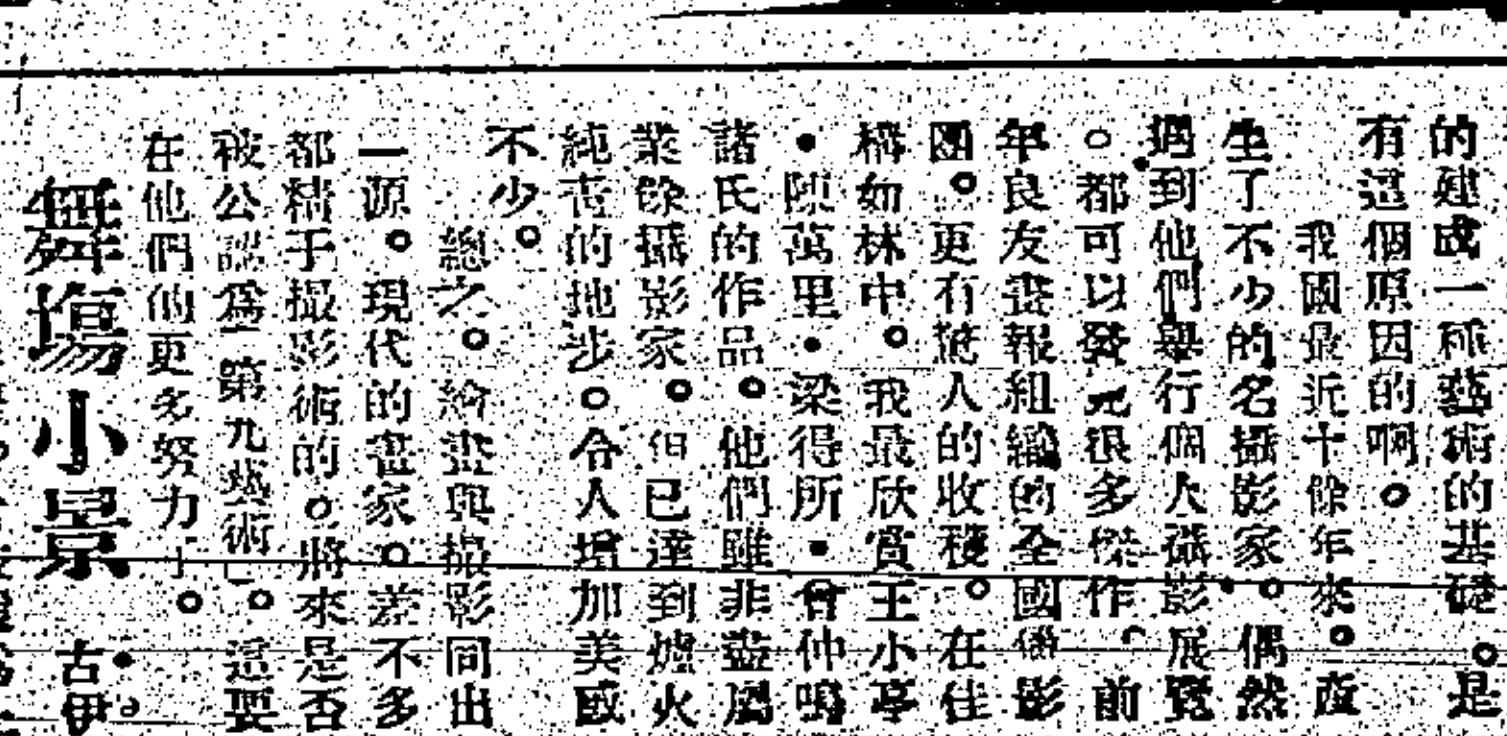 的建成一種藝術的基礎。是
有這個原因的啊。
我國最近十餘年來。產
生了不少的名攝影家。偶然
遇到他們舉行個人攝影展覽
。都可以發見很多傑作。前
年良友畫報組織的全國攝影
團。更有驚人的收穫。在佳
構如林中。我最欣賞王小亭
・陳萬里・梁得所・曾仲鳴
諸氏的作品。他們雖非盡屬
業餘攝影家。但已達到爐火
純青的地步。令人增加美感
不少。
總之。繪畫與攝影同出
一源。現代的畫家。差不多
都精于攝影術的。將來是否
被公認爲「第九藝術」。這要
在他們的更多努力了。
舞場小景 古伊